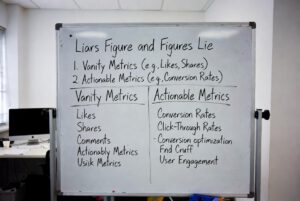 Liars Figure and Figures Lie
1. Vanity Metrics (e.g. Likes, Shares)
2 Actionable Metrics (e.g, Conversion Rates)
Vanity Metrics
Likes
Shares
Comments
Actionably Metrics
Usiik Metrics
Actionable Metrics
Conversion Rates
Click-Through Rates
- Conversion optimization
Fnd Cruff
User Engagement